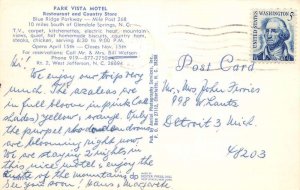 PARK VISTA MOTEL
Restaurant and Country Store
Blue Ridge Parkway — Mile Post 268
10 miles South of Glendale Springs, N. C.
T.V., carpet, kitchenettes, electric heat, mountain
views. Eat homemade biscuits, country ham,
steaks, chicken, serving 6:30 to 9:00 P.M.
Opens April 15th — Closes Nov. 15th
For reservations: Call Mr. & Mrs. Bill Watson
Phone 919—877-2750
Rt. 2, West Jefferson, N. C. 28694
We enjoy our trips very
much. The azaleas are
in full bloom in pink (all
shades) yellow, orange. Only
the purpel rhododendrons
are blooming right now.
We are staying 2 nights in
this nice motel & enjoy the
of the mountains.
See you soon! Hans & Margarete
Post Card
Mr. + Mrs. John
998 W
Detroit 3 Mich.
48203
UNITED STATES
5¢
WASHINGTON